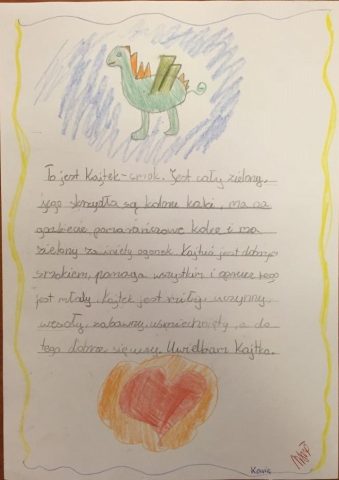 To jest Kajtek-smok. Jest cały zielony,
jego skrzydła są koloru kaki, ma na
grzbiecie pomarańczowe kolce i ma
zielony zawinięty ogonek. Kajtuś jest dobrym
smokiem, pomaga wszystkim i oprócz tego
jest młody. Kajtek jest miły, uczynny,
wesoły, zabawny, uśmiechnięty, a do
tego dobrze się uczy. Uwielbiam Kajtka.